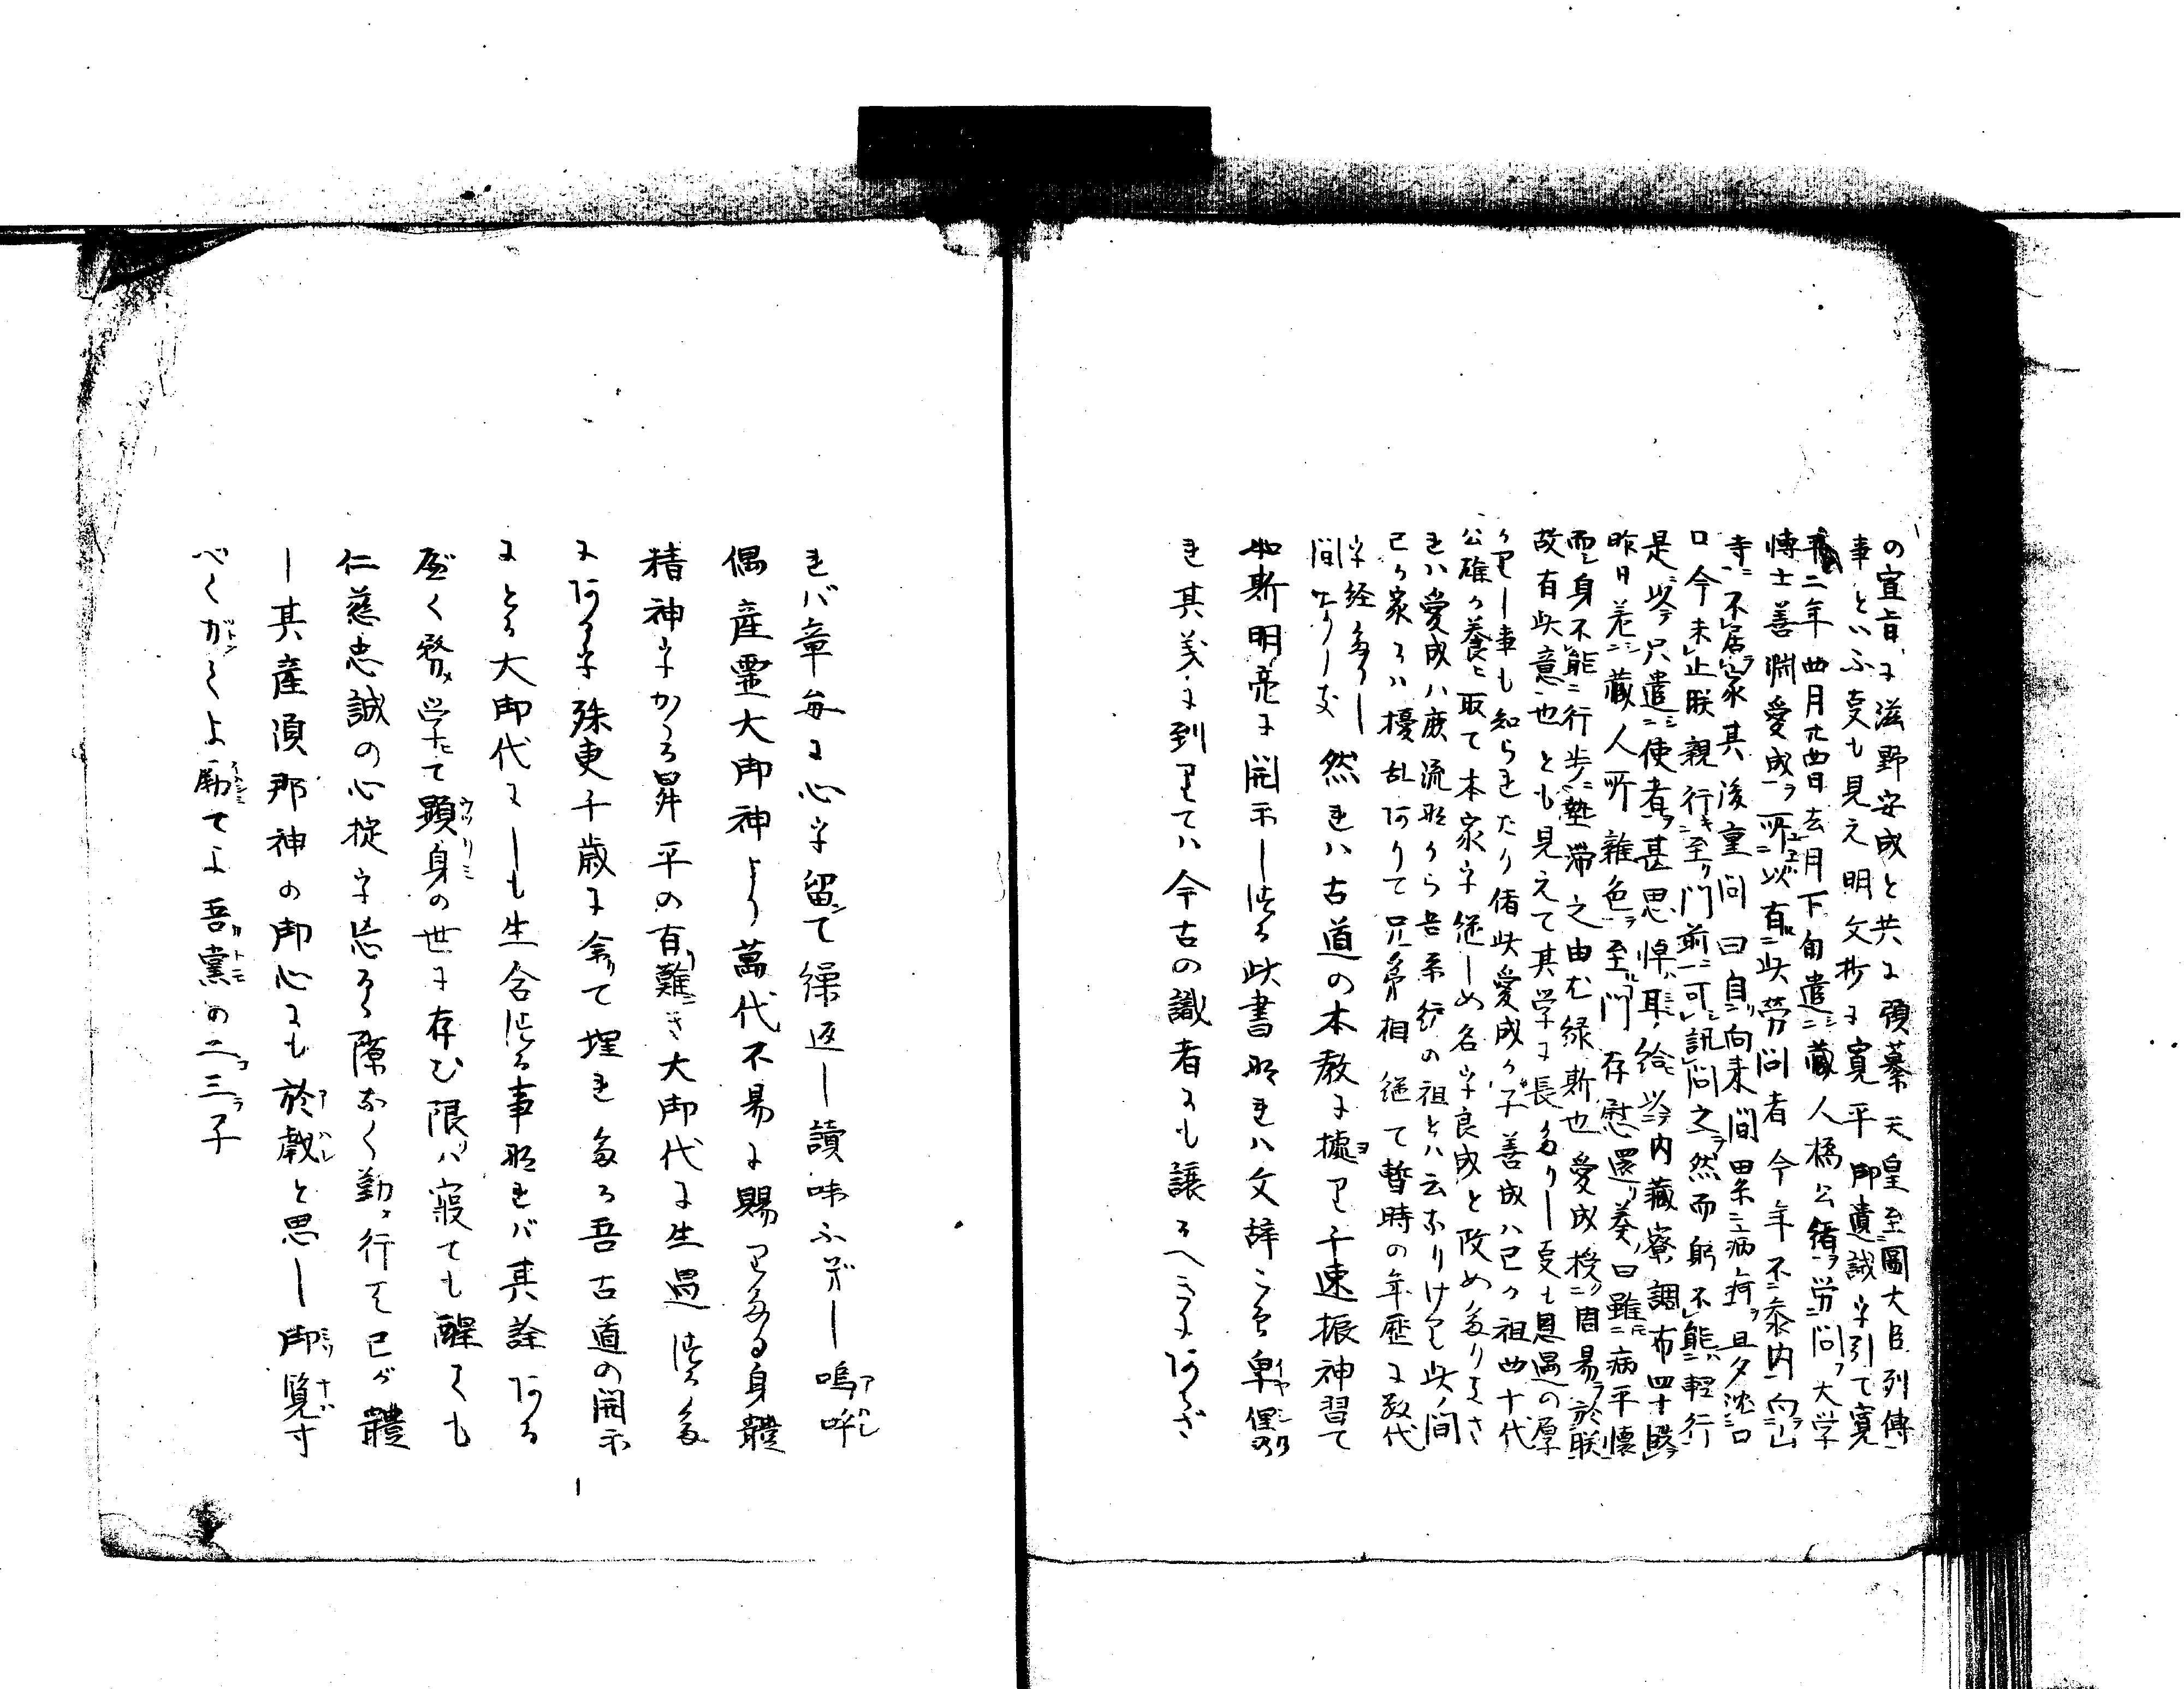 の宣旨に滋野安成と共に預蓁天皇至圖大臣列傳
事といふ事も見え明文抄に寛平御遺誡を引て寛
平二年四月廿四日去月下旬遣蔵人橘公緒労問大学
博士善淵愛成所以有此労問者今年不参内向山
寺不居家其後重問曰自向来間田舎病疴且夕沈口
口今未止朕親行至門前可訊問之然而躬不能軽行
是以今只遣使者甚思悼耳給以内蔵寮調布四十段
昨日差蔵人所雑色至門存慰還奏曰雖病平懐
而身不能行歩塾滞之由尤緑斯也愛成授周易於朕
故有此意也とも見えて其学に長たりし事も恩遇の厚
かりし事も知られたり偖此愛成が子善成ハ己が祖四十代
公雄が養に取て本家を継しめ名を良成と改めたりさ
れハ愛成ハ庶流ながら吾系統の祖とハ云なりけり此間
己が家にハ擾乱ありて兄弟相継て暫時の年歴に数代
を経たりし
間なりき 然れハ古道の本教に據り千速振神習て
如斯明亮に開示しつる此書なれハ文辞こそ卑俚しけ
れ其義に到りてハ今古の識者にも譲るへきにあらざ
れバ章毎に心を留て繰返し讀味ふべし嗚呼
偶産霊大御神より萬代不易に賜りたる身體
精神をかゝる昇平の有難き大御代に生遇つるた
にあるを殊更千歳に余て埋れたる吾古道の開示
にとる大御代にしも生合つる事なれバ其詮ある
べく務学て顕身の世に存む限バ寝ても醒ても
仁慈忠誠の心掟を怠る隙なく勤行て己が體
し其産須那神の御心にも於戯と思し御覧す
べくがてよ励てよ吾黨の二三子